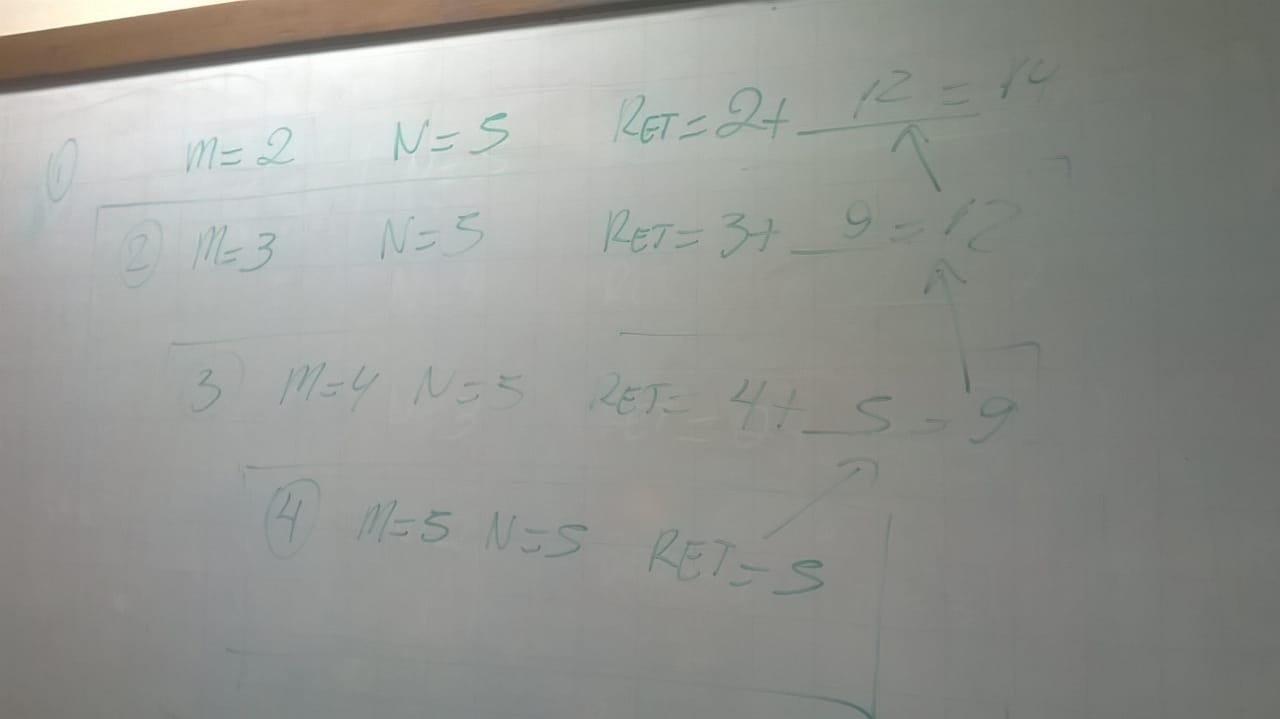 ① M=2 N=5 RET=2+ 12 = 14
② M=3 N=5 RET=3+ 9 = 12
3 M=4 N=5 RET= 4+ 5 = 9
④ M=5 N=5 RET=5